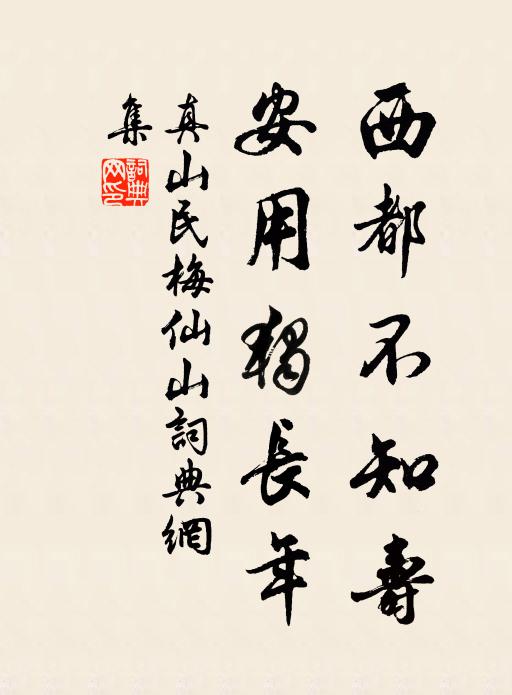 西都不知壽
安用獨長年
真山民梅仙山詞典網
集
詞典網印